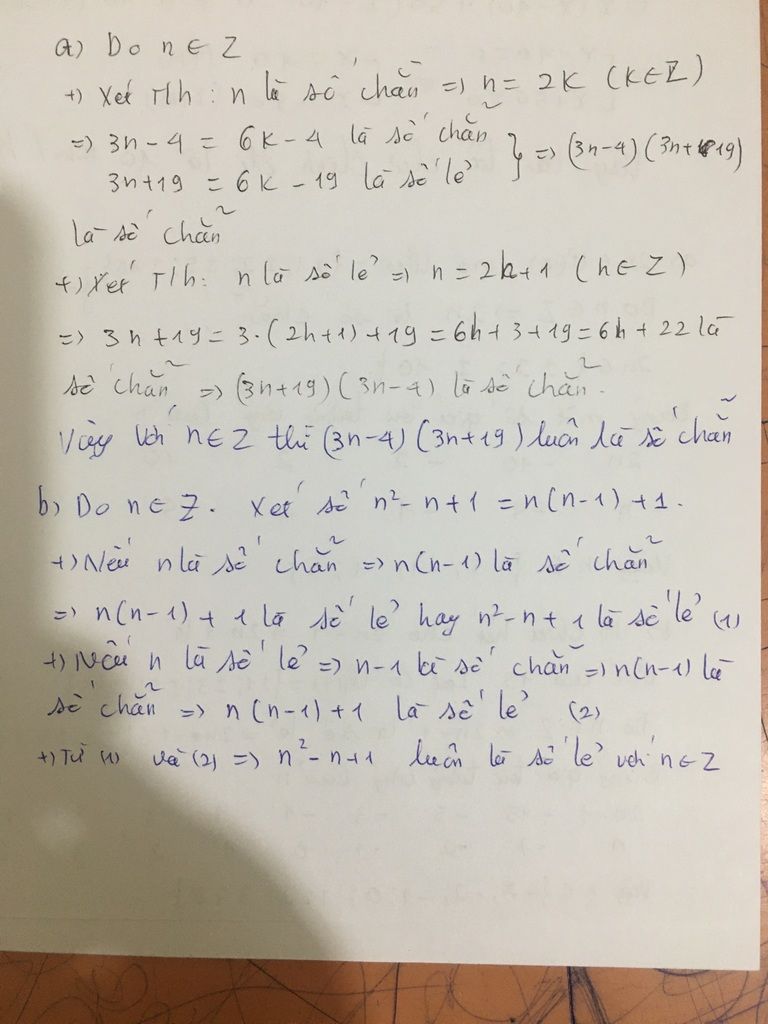 a) Do n ∈ Z
+) Xét T/h : n là số chẵn => n = 2K (K∈Z)
=> 3n - 4 = 6k - 4 là số chẵn } => (3n-4)(3n+19)
3n+19 = 6k - 19 là số lẻ
là số chẵn
+) Xét T/h: n là số lẻ => n = 2h+1 (h∈Z)
=> 3n+19 = 3.(2h+1)+19 = 6h+3+19 = 6h+22 là
số chẵn => (3n+19)(3n-4) là số chẵn.
Vậy với n∈Z thì (3n-4)(3n+19) luôn là số chẵn
b) Do n∈Z. Xét số n²-n+1 = n(n-1)+1.
+) Nếu n là số chẵn => n(n-1) là số chẵn
=> n(n-1)+1 là số lẻ hay n²-n+1 là số lẻ (1)
+) Nếu n là số lẻ => n-1 là số chẵn => n(n-1) là
số chẵn => n(n-1)+1 là số lẻ (2)
+) Từ (1) và (2) => n²-n+1 luôn là số lẻ với n∈Z